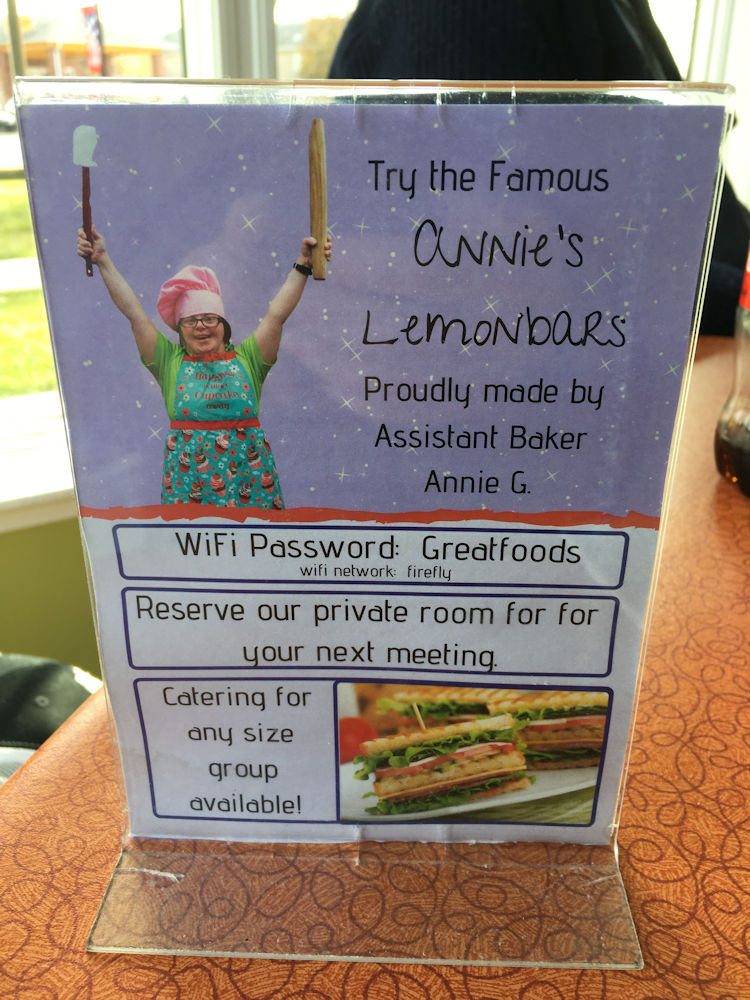 Try the Famous
Annie's
Lemonbars
Proudly made by
Assistant Baker
Annie G.
Cupcake
away
WiFi Password: Greatfoods
wifi network: firefly
Reserve our private room for for
your next meeting.
Catering for
any size
group
available!